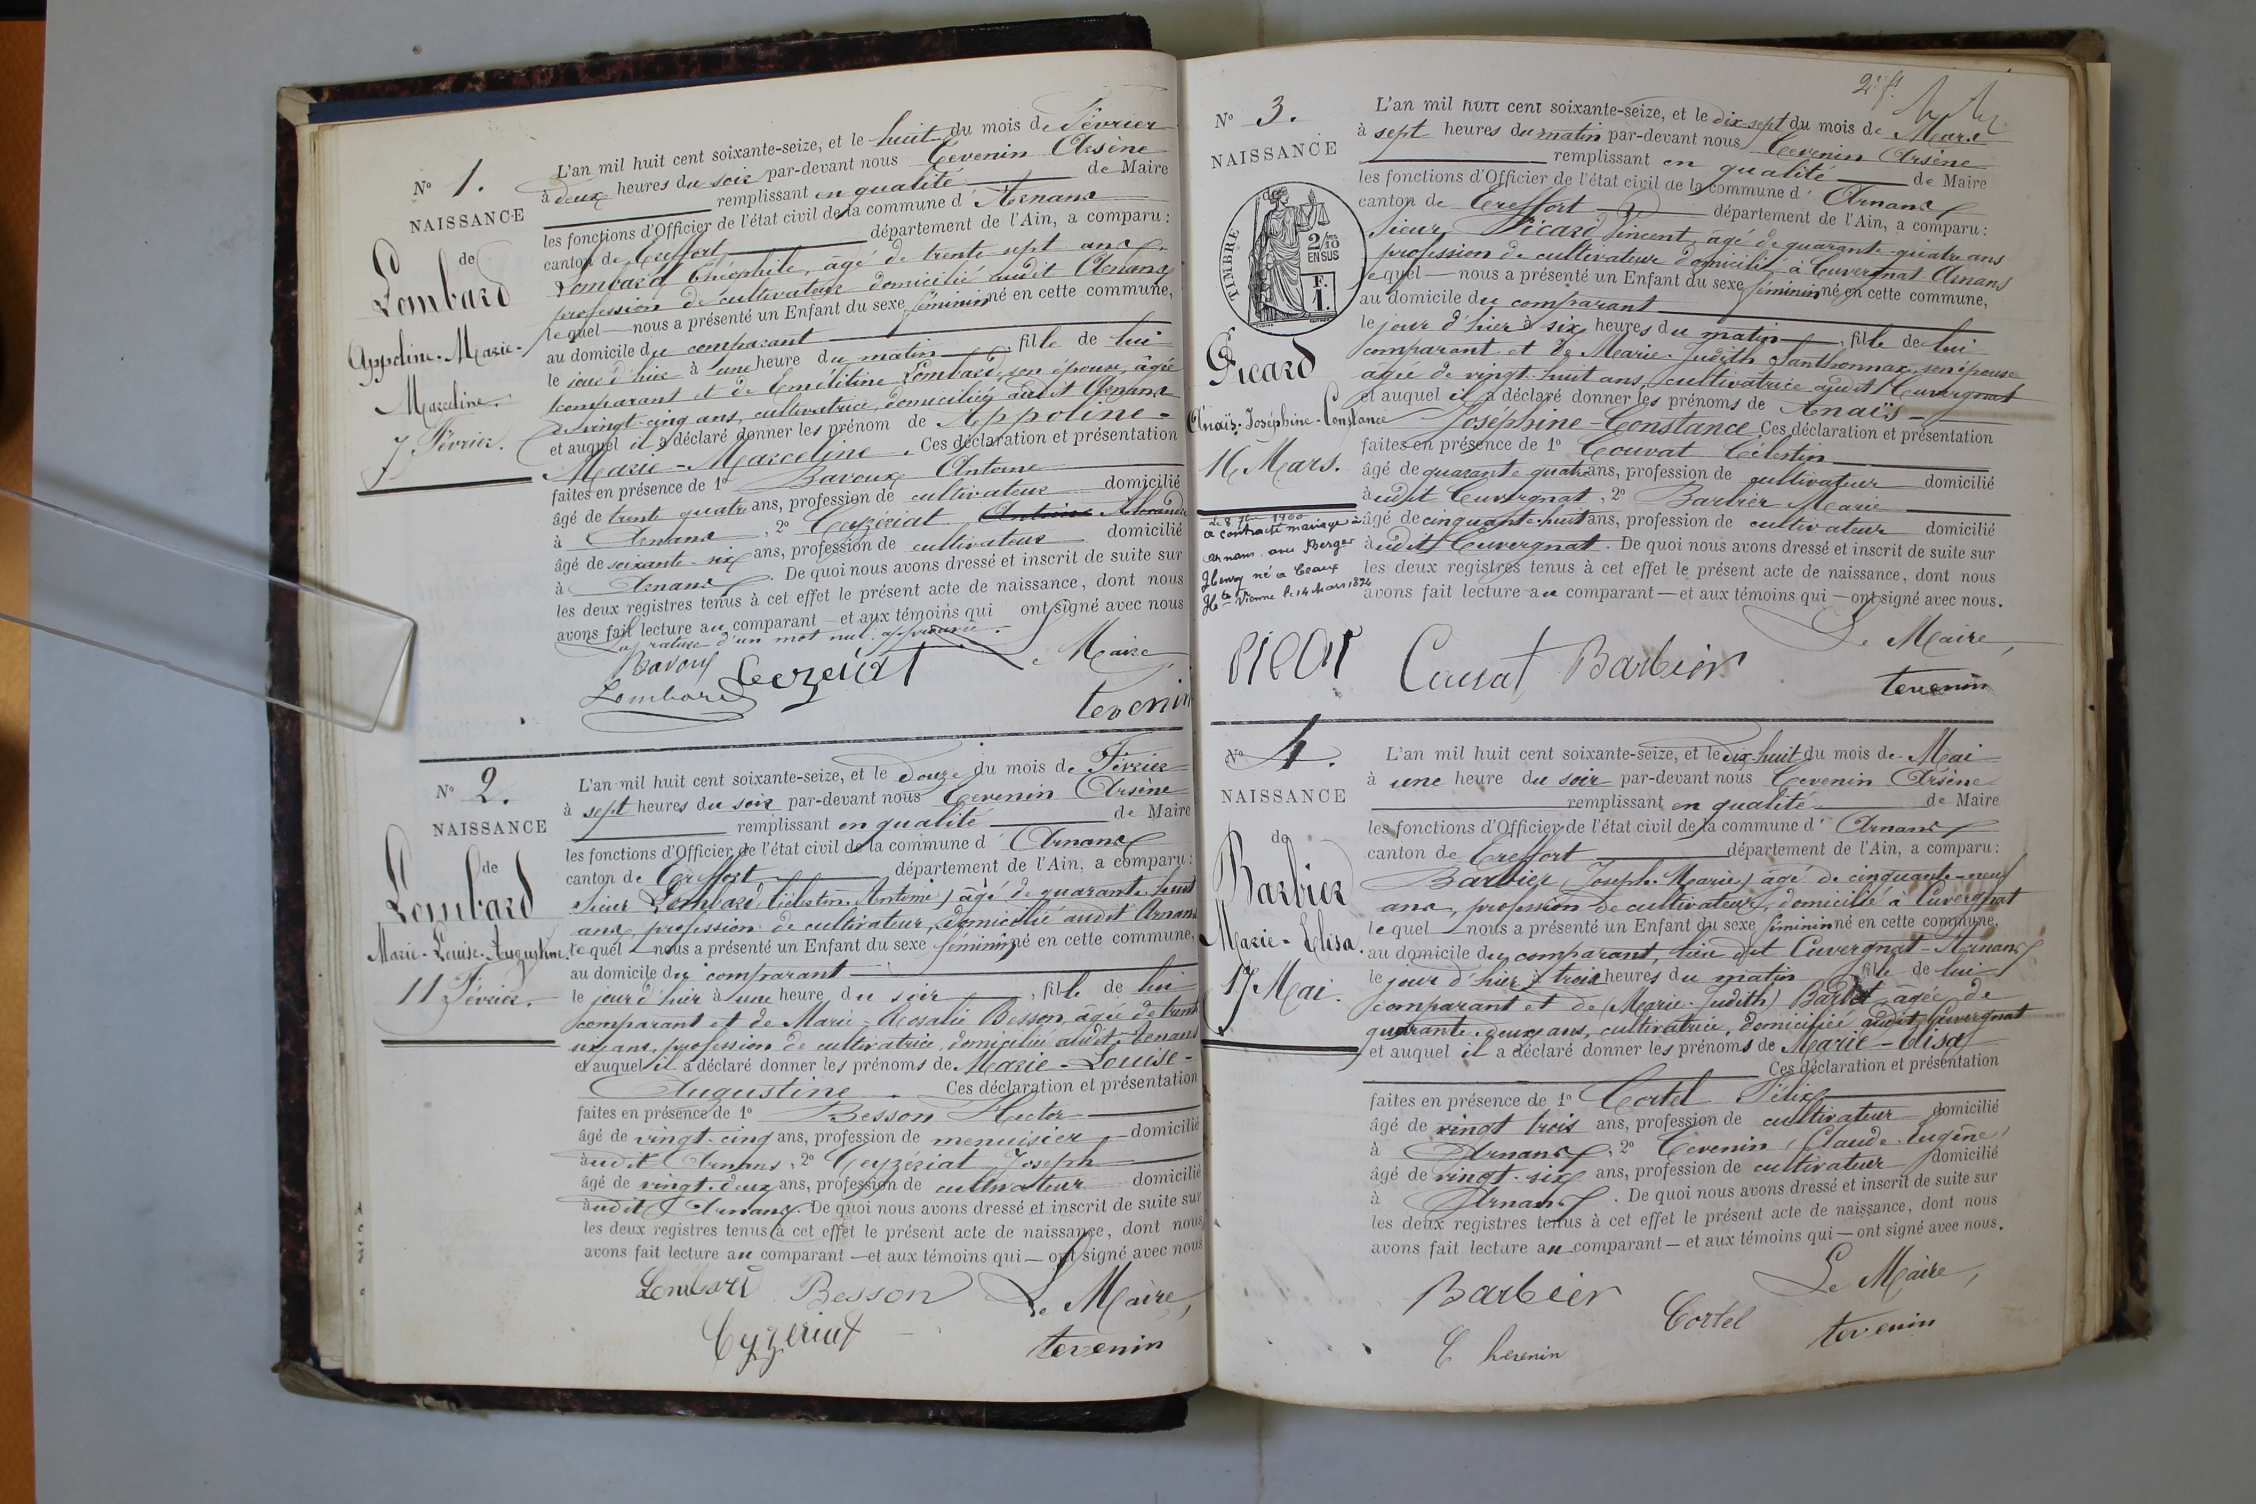 N° 1.
NAISSANCE
de
Lombard
Appoline-Marie-
Marceline.
7 Février.
L'an mil huit cent soixante-seize, et le huit du mois de Février
à deux heures du soir par-devant nous Tevenin Arsène
remplissant en qualité de Maire
les fonctions d'Officier de l'état civil de la commune d' Arnans
canton de Treffort département de l'Ain, a comparu:
Lombard Théophile, âgé de trente sept ans,
profession de cultivateur domicilié audit Arnans
lequel nous a présenté un Enfant du sexe féminin né en cette commune,
au domicile du comparant
le jour d'hier à une heure du matin, fille de lui
comparant et de Lombard, son épouse, âgée
de vingt-cinq ans, cultivatrice, domiciliée audit Arnans
et auquel il a déclaré donner les prénom de Appoline-
Marie-Marceline. Ces déclaration et présentation
faites en présence de 1° Bavoux Antoine
âgé de trente quatre ans, profession de cultivateur domicilié
à Arnans, 2° Ceyzériat Antoine Alexandre
âgé de soixante-six ans, profession de cultivateur domicilié
à Arnans. De quoi nous avons dressé et inscrit de suite sur
les deux registres tenus à cet effet le présent acte de naissance, dont nous
avons fait lecture au comparant et aux témoins qui ont signé avec nous
La rature d'un mot nul approuvée.
Bavoux Ceyzeriat Le Maire,
Lombard
tevenin
N° 2.
NAISSANCE
de
Lombard
Marie-Louise-Augustine.
11 Février.
L'an mil huit cent soixante-seize, et le douze du mois de Février
à sept heures du soir par-devant nous Tevenin Arsène
remplissant en qualité de Maire
les fonctions d'Officier de l'état civil de la commune d' Arnans
canton de Treffort département de l'Ain, a comparu:
Sieur Lombard (Célestin Antoine) âgé de quarante huit
ans, profession de cultivateur, domicilié audit Arnans
lequel nous a présenté un Enfant du sexe féminin né en cette commune,
au domicile du comparant
le jour d'hier à une heure du soir, fille de lui
comparant et de Marie-Rosalie Besson, âgée de trente
un ans, profession de cultivatrice, domiciliée audit Arnans
et auquel il a déclaré donner les prénoms de Marie-Louise-
Augustine. Ces déclaration et présentation
faites en présence de 1° Besson Hector
âgé de vingt-cinq ans, profession de menuisier domicilié
audit Arnans, 2° Ceyzériat Joseph
âgé de vingt-deux ans, profession de cultivateur domicilié
audit Arnans. De quoi nous avons dressé et inscrit de suite sur
les deux registres tenus à cet effet le présent acte de naissance, dont nous
avons fait lecture au comparant et aux témoins qui ont signé avec nous
Lombard Besson Le Maire,
Cyzeriat tevenin
2e ft
N° 3.
NAISSANCE
de
TIMBRE
2/10
EN SUS
F.
1.
Picard
Anaïs-Joséphine-Constance
16 Mars.
1900
a contracté mariage à
Arnans avec Berger
Henry né à
Hte Vienne le 14 Mars 1874
L'an mil huit cent soixante-seize, et le dix-sept du mois de Mars
à sept heures du matin par-devant nous Tevenin Arsène
remplissant en qualité de Maire
les fonctions d'Officier de l'état civil de la commune d' Arnans
canton de Treffort département de l'Ain, a comparu:
Sieur Picard Vincent, âgé de quarante-quatre ans
profession de cultivateur domicilié à Cuvergnat-Arnans
lequel nous a présenté un Enfant du sexe féminin né en cette commune,
au domicile du comparant
le jour d'hier à six heures du matin, fille de lui
comparant et de Marie-Judith Santhonnax, son épouse
âgée de vingt-huit ans, cultivatrice audit Cuvergnat
et auquel il a déclaré donner les prénoms de Anaïs-
Joséphine-Constance. Ces déclaration et présentation
faites en présence de 1° Couvat Célestin
âgé de quarante quatre ans, profession de cultivateur domicilié
audit Cuvergnat, 2° Barbier Marie
âgé de cinquante-huit ans, profession de cultivateur domicilié
audit Cuvergnat. De quoi nous avons dressé et inscrit de suite sur
les deux registres tenus à cet effet le présent acte de naissance, dont nous
avons fait lecture au comparant et aux témoins qui ont signé avec nous.
Le Maire,
Couvat Barbier
tevenin
N° 4.
NAISSANCE
de
Barbier
Marie-Elisa.
17 Mai.
L'an mil huit cent soixante-seize, et le dix-huit du mois de Mai
à une heure du soir par-devant nous Tevenin Arsène
remplissant en qualité de Maire
les fonctions d'Officier de l'état civil de la commune d' Arnans
canton de Treffort département de l'Ain, a comparu:
Barbier (Joseph-Marie) âgé de cinquante-neuf
ans, profession de cultivateur, domicilié à Cuvergnat
lequel nous a présenté un Enfant du sexe féminin né en cette commune,
au domicile du comparant, lieu dit Cuvergnat-Arnans
le jour d'hier à trois heures du matin, fille de lui
comparant et de (Marie-Judith) Barbet âgée de
quarante-deux ans, cultivatrice, domiciliée audit Cuvergnat
et auquel il a déclaré donner les prénoms de Marie-Elisa
Ces déclaration et présentation
faites en présence de 1° Cortel Félix
âgé de vingt trois ans, profession de cultivateur domicilié
à Arnans, 2° Tevenin (Claude-Eugène)
âgé de vingt-six ans, profession de cultivateur domicilié
à Arnans. De quoi nous avons dressé et inscrit de suite sur
les deux registres tenus à cet effet le présent acte de naissance, dont nous
avons fait lecture au comparant et aux témoins qui ont signé avec nous.
Barbier Le Maire,
Cortel tevenin